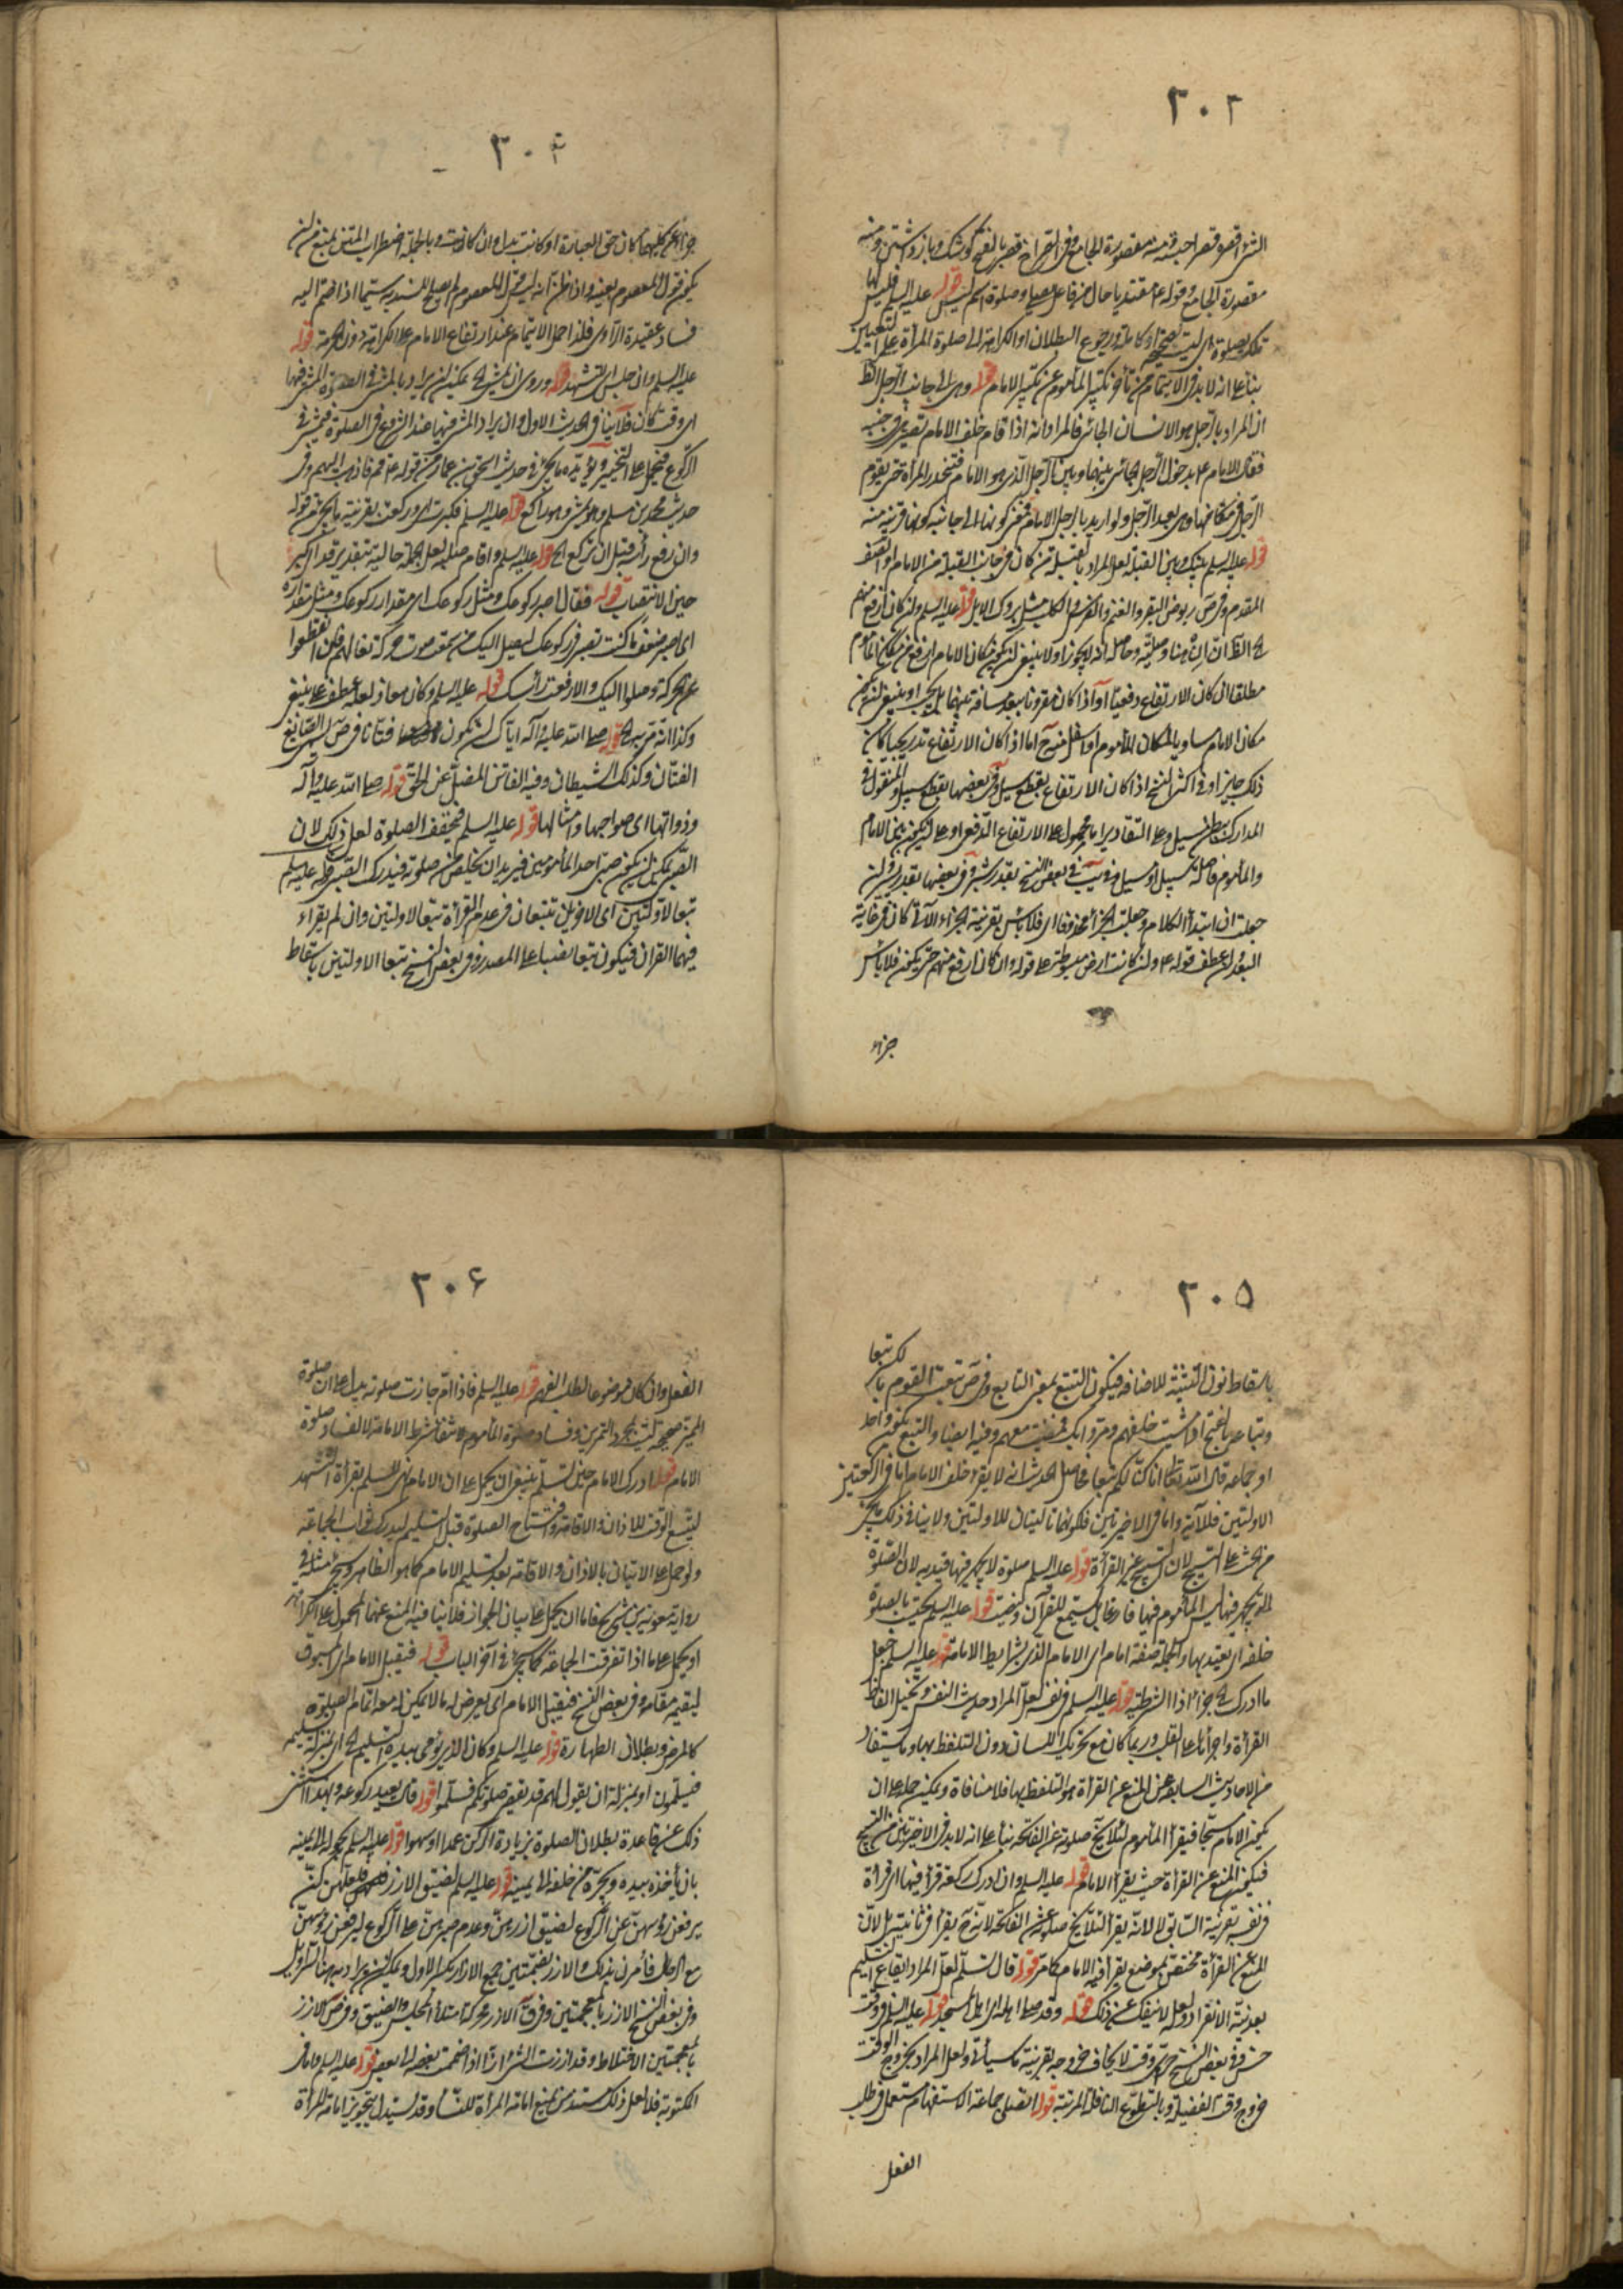 ٣٠٣
الشئ اقصره قصرا حبسته ومنه مقصورة الجامع وفى الصراح قصر بالفتح كوشك وباز داشتن ومنه
مقصورة الجامع وقوله ع مقتديا حال من فاعل يصلى وصلوة اسم ليس قوله عليه السلم فليس لها
تلك بصلوة اى ليست صحيحة او كاملة ورجوع البطلان او الكراهة الى صلوة المرأة على التعيين
بناء على انه لا بد فى الايتمام من تأخر تكبير المأموم عن تكبير الامام قوله وهى الى جانب الرجل الظ
ان المراد بالرجل هو الانسان الجائى فالمراد انه اذا قام خلف الامام تقربت من جنبه
فقال الامام ع يدخل الرجل الجائى بينها وبين الرجل الذى هو الامام فتنحدر المرأة حتى يقوم
الرجل فى مكانها وهى بعيد الرجل ولو اريد بالرجل الامام فمعنى كونها الى جانبه كونها قريبة منه
قوله عليه السلم بينك وبين القبلة لعل المراد بالقبلة من كان فى جانب القبلة من الامام او الصف
المقدم وفى ص ربوض البقر والغنم والفرس والكلب مثل بروك الابل قوله عليه السلم وان كان ارفع منهم
الخ الظ ان ان هنا وصلية وحاصله انه لا يجوز او لا ينبغى ان يكون مكان الامام ارفع من مكان المأموم
مطلقا ان كان الارتفاع دفعيا او اذا كان مقرونا ببعد مسافة بينهما بل يجب او ينبغى ان يكون
مكان الامام مساويا لمكان المأموم او اسفل منه اما اذا كان الارتفاع تدريجيا كان
ذلك جايزا وفى اكثر النسخ اذا كان الارتفاع بقطع سيل وفى بعضها بقطع سبيل والمنقول فى
المدارك ببطن مسيل وعلى التقادير اما محمول على الارتفاع الدفعى او على ان يكون بين الامام
والمأموم فاصلة سبيل او سيل وفى يب فى بعض النسخ بقدر شبر وفى بعضها بقدر يسير وان
جعلت ان ابتداء الكلام وجعلت الجزاء محذوفا اى فلا باس بقرينة الجزاء الآتى كان فى غاية
البعد لان عطف قوله ع وان كانت ارض مبسوطة على قوله وان كان ارفع منهم حتى يكون فلا باس
جزاء
٣٠٤
جزاء عن كليهما كان حق العبارة او كانت بدل وان كانت وبالجملة اضطراب المتن يمنع من ان
يكون قول المعصوم بعينه واذا ظن انه ليس قول المعصوم لم يصلح للسندية سيما اذا ضم اليه
فساد عقيدة الراوى فلذا حمل الايتمام عند ارتفاع الامام على الكراهة دون الحرمة قوله
عليه السلم وان جلس اى للتشهد قوله وروى ان يمشى الخ يمكن ان يراد بالمشى فى الصلوة المشى فيها
اى وقت كان فلا ينافى الحديث الاول وان يراد المشى فيها عند الشروع فى الصلوة فيمشى فى
الركوع فيحمل على التخيير ويؤيده ما يجئ فى حديث اسحق بن عمار من قوله ع قم فاذهب اليهم وفى
حديث محمد بن مسلم وهو يمشى وهو راكع قوله عليه السلم فكبرت اى وركعت بقرينة ما يجئ من قوله
وان رفع رأسه قبل ان تركع الخ قوله عليه السلم واقام صلبه لعل الجملة حالية بتقدير قد اى كبر
حين الانتصاب قوله فقال اصبر ركوعك ومثل ركوعك اى مقدار ركوعك ومثل مقداره
اى اصبر ضعف ما كنت تصبر فى ركوعك ليصل اليك من سمع صوت حركة نعالهم فان انقطعوا
عن الحركة وصلوا اليك والا رفعت رأسك قوله عليه السلم وكان معاذ لعله عطف على ينبغى
وكذا انه مر به الخ قوله صلى الله عليه وآله اياك ان تكون فتانا فى ص اللص الصانع
الفتان وكذلك الشيطان وفيه الفاتن المضل عن الحق قوله صلى الله عليه وآله
وذواتها اى صواحبها وامثالها قوله عليه السلم فخفف الصلوة لعل ذلك لان
الصبى يمكن ان يكون صبى احد المأمومين فيريد ان يخلص من صلوته فيدرك الصبى قوله عليه السلم
تبعا للاولتين اى الاخريان تتبعان فى عدم القرأة تبعا للاولتين وان لم يقراء
فيهما القران فيكون تبعا نصبا على المصدر وفى بعض النسخ تبعا الاولتين باسقاط
٣٠٥
باسقاط نون التثنية للاضافة فيكون التبع بمعنى التابع وفى ص تبعت القوم با لكسر تبعا
وتباعة بالفتح اذا مشيت خلفهم ومروا بك فمضيت معهم وفيه ايضا والتبع يكون واحد
او جماعة قال الله تعالى انا كنا لكم تبعا فحاصل الحديث انه لا يقرء خلف الامام اما فى الركعتين
الاولتين فللآية واما فى الاخيرتين فلكونهما تاليتان للاولتين ولا ينافى ذلك ما يجئ
من الحث على التسبيح لان التسبيح غير القرأة قوله عليه السلم صلوة لا يجهر فيها قيد به لان الصلوة
التى يجهر فيها ليس المأموم فيها فارغا بل يستمع للقرآن وينصت قوله عليه السلم يحتسب بالصلوة
خلفه اى يعتد بها والجملة صفة امام اى الامام الذى بشرايط الامامة قوله عليه السلم جعل
ما ادرك الخ جزاء اذا الشرطية قوله عليه السلم فى نفسه لعل المراد حديث النفس وتخيل الفاظ
القرأة واجرائها على القلب وربما كان مع تحريك اللسان دون التلفظ بها وما يستفاد
من الاحاديث السابقة من المنع عن القرأة هو التلفظ بها فلا منافاة ويمكن حمله على ان
يكون الامام مسبحا فيقرأ المأموم لئلا يخ صلوته عن الفاتحة بناء على انه لا بد فى الاخيرتين من التسبيح
فيكون المنع عن القرأة حيث يقرأ الامام قوله عليه السلم وان ادرك ركعة قرأ فيها اى قرأة
فى نفسه بقرينة السابق لا لانه يقرأ لئلا يخ صلوته عن الفاتحة لانه ح يقرأ فى ثانيته بل لان
المنع عن القرأة مختص بموضع يقرأ فيه الامام كما مر قوله قال تسلم لعل المراد ايقاع التسليم
بعد نية الانفراد ولعله لا ينفك عن ذلك قوله وقد صلى اهله اى اهل المسجد قوله عليه السلم فى وقت
حسن وفى بعض النسخ اى وقت لا يخاف خروجه بقرينة ما سيأتى ولعل المراد بخروج الوقت
خروج وقت الفضيلة وبالتطوع النافلة المرتبة قوله انصلى جماعة الاستفهام مستعمل فى طلب
الفعل
٣٠۶
الفعل وان كان موضوعا لطلب الفهم قوله عليه السلم فاذا ام جازت صلوته يدل على ان صلوة
المميز صحيحة ليست بمجرد التمرين وفساد صلوة المأموم لانتفاء شرط الامامة لا لفساد صلوة
الامام قوله ادرك الامام حين تسلم ينبغى ان يحمل على ان الامام لم يسلم بقرأة التشهد
ليتسع الوقت للاذان والاقامة وافتتاح الصلوة قبل التسليم ليدرك ثواب الجماعة
ولو حمل على الاتيان بالاذان والاقامة بعد تسليم الامام كما هو الظاهر ويجئ مثله فى
رواية معوية بن شريح فاما ان يحمل على بيان الجواز فلا ينافيه المنع عنهما المحمول على الكراهة
او يحمل على ما اذا تفرقت الجماعة كما يجئ فى آخر الباب قوله فيقبل الامام اى المسبوق
ليقيمه مقامه وفى بعض النسخ فيقبل الامام اى يعرض له ما لا يمكن له معه اتمام الصلوة
كالمرض وبطلان الطهارة قوله عليه السلم وكان الذى يومى بيده التسليم الخ اى بمنزلة تسليمه
فيسلمون او بمنزلة ان يقول لهم قد تقضى صلوتكم فسلموا قوله قال يعيد ركوعه وبهذا استثنى
ذلك عن قاعدة بطلان الصلوة بزيادة الركن عمدا او سهوا قوله عليه السلم يحوله الى يمينه
بان يأخذه بيده ويجره من خلفه الى يمينه قوله عليه السلم لضيق الازر فلعلهن كن
يرفعن رؤسهن عن الركوع لضيق ازرهن وعدم صبرهن على الركوع ليرفعن رؤسهن
مع الرجال فأمرن بذلك والازر بضمتين جمع الازار بكسر الاول ويمكن ان يراد بها السراويل
وفى بعض النسخ الازز بالمعجمتين وفى ق الازز محركة امتلاء المجلس والضيق وفى ص الازز
بالمعجمتين الاختلاط وقد ازرت الشئ ازا اذا ضممت بعضه الى بعض قوله عليه السلم فاما فى
المكتوبة فلا لعل ذلك مستند من يمنع امامة المرأة للنساء وقد يستدل بتجويز امامة المرأة